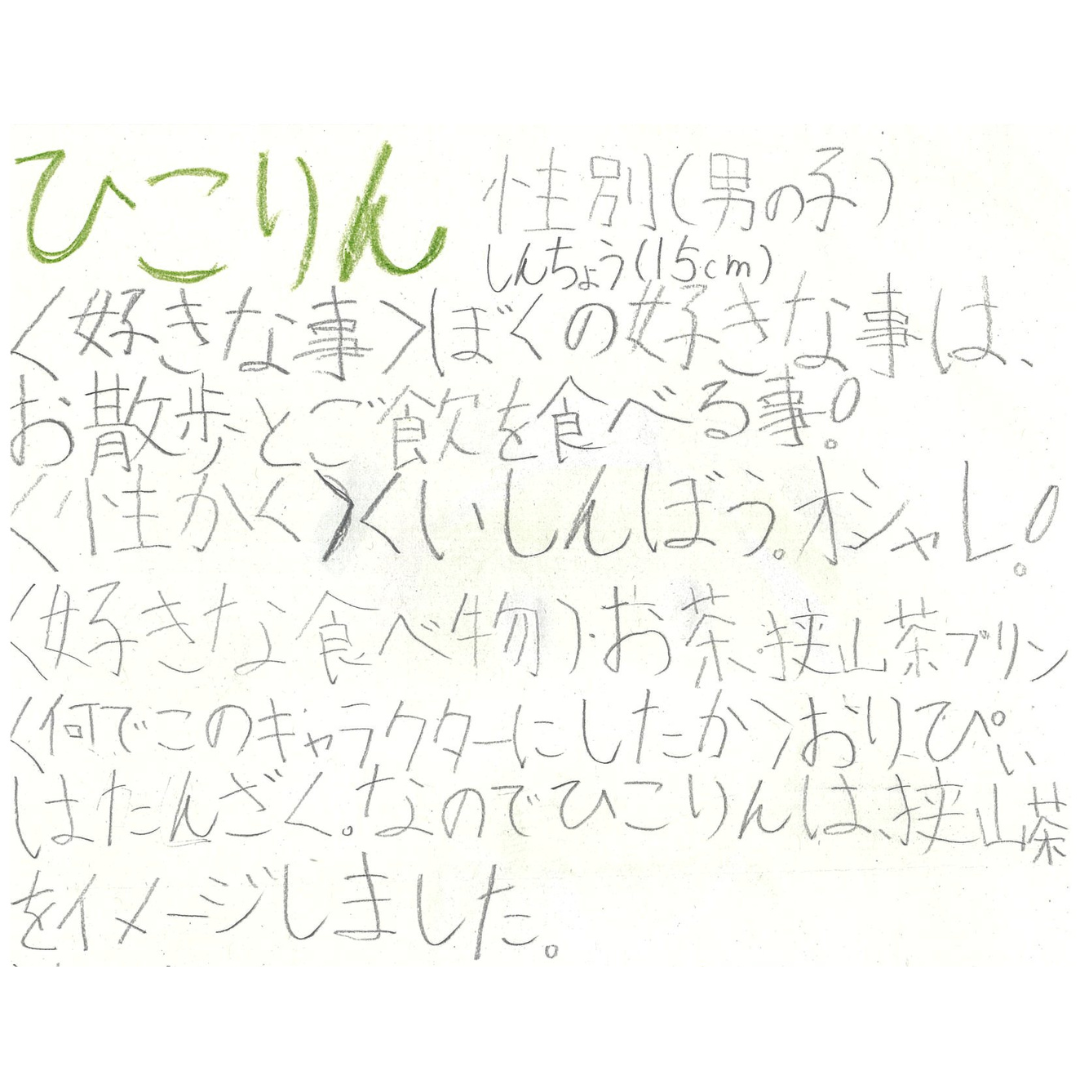 ひこりん 性別(男の子)
しんちょう(15cm)
〈好きな事〉ぼくの好きな事は、
お散歩とご飲を食べる事!
〈性かく〉くいしんぼう。オシャレ!
〈好きな食べ物〉お茶、狭山茶プリン
〈何でこのキャラクターにしたか〉おりぴぃ
はたんざく。なのでひこりんは、狭山茶
をイメージしました。